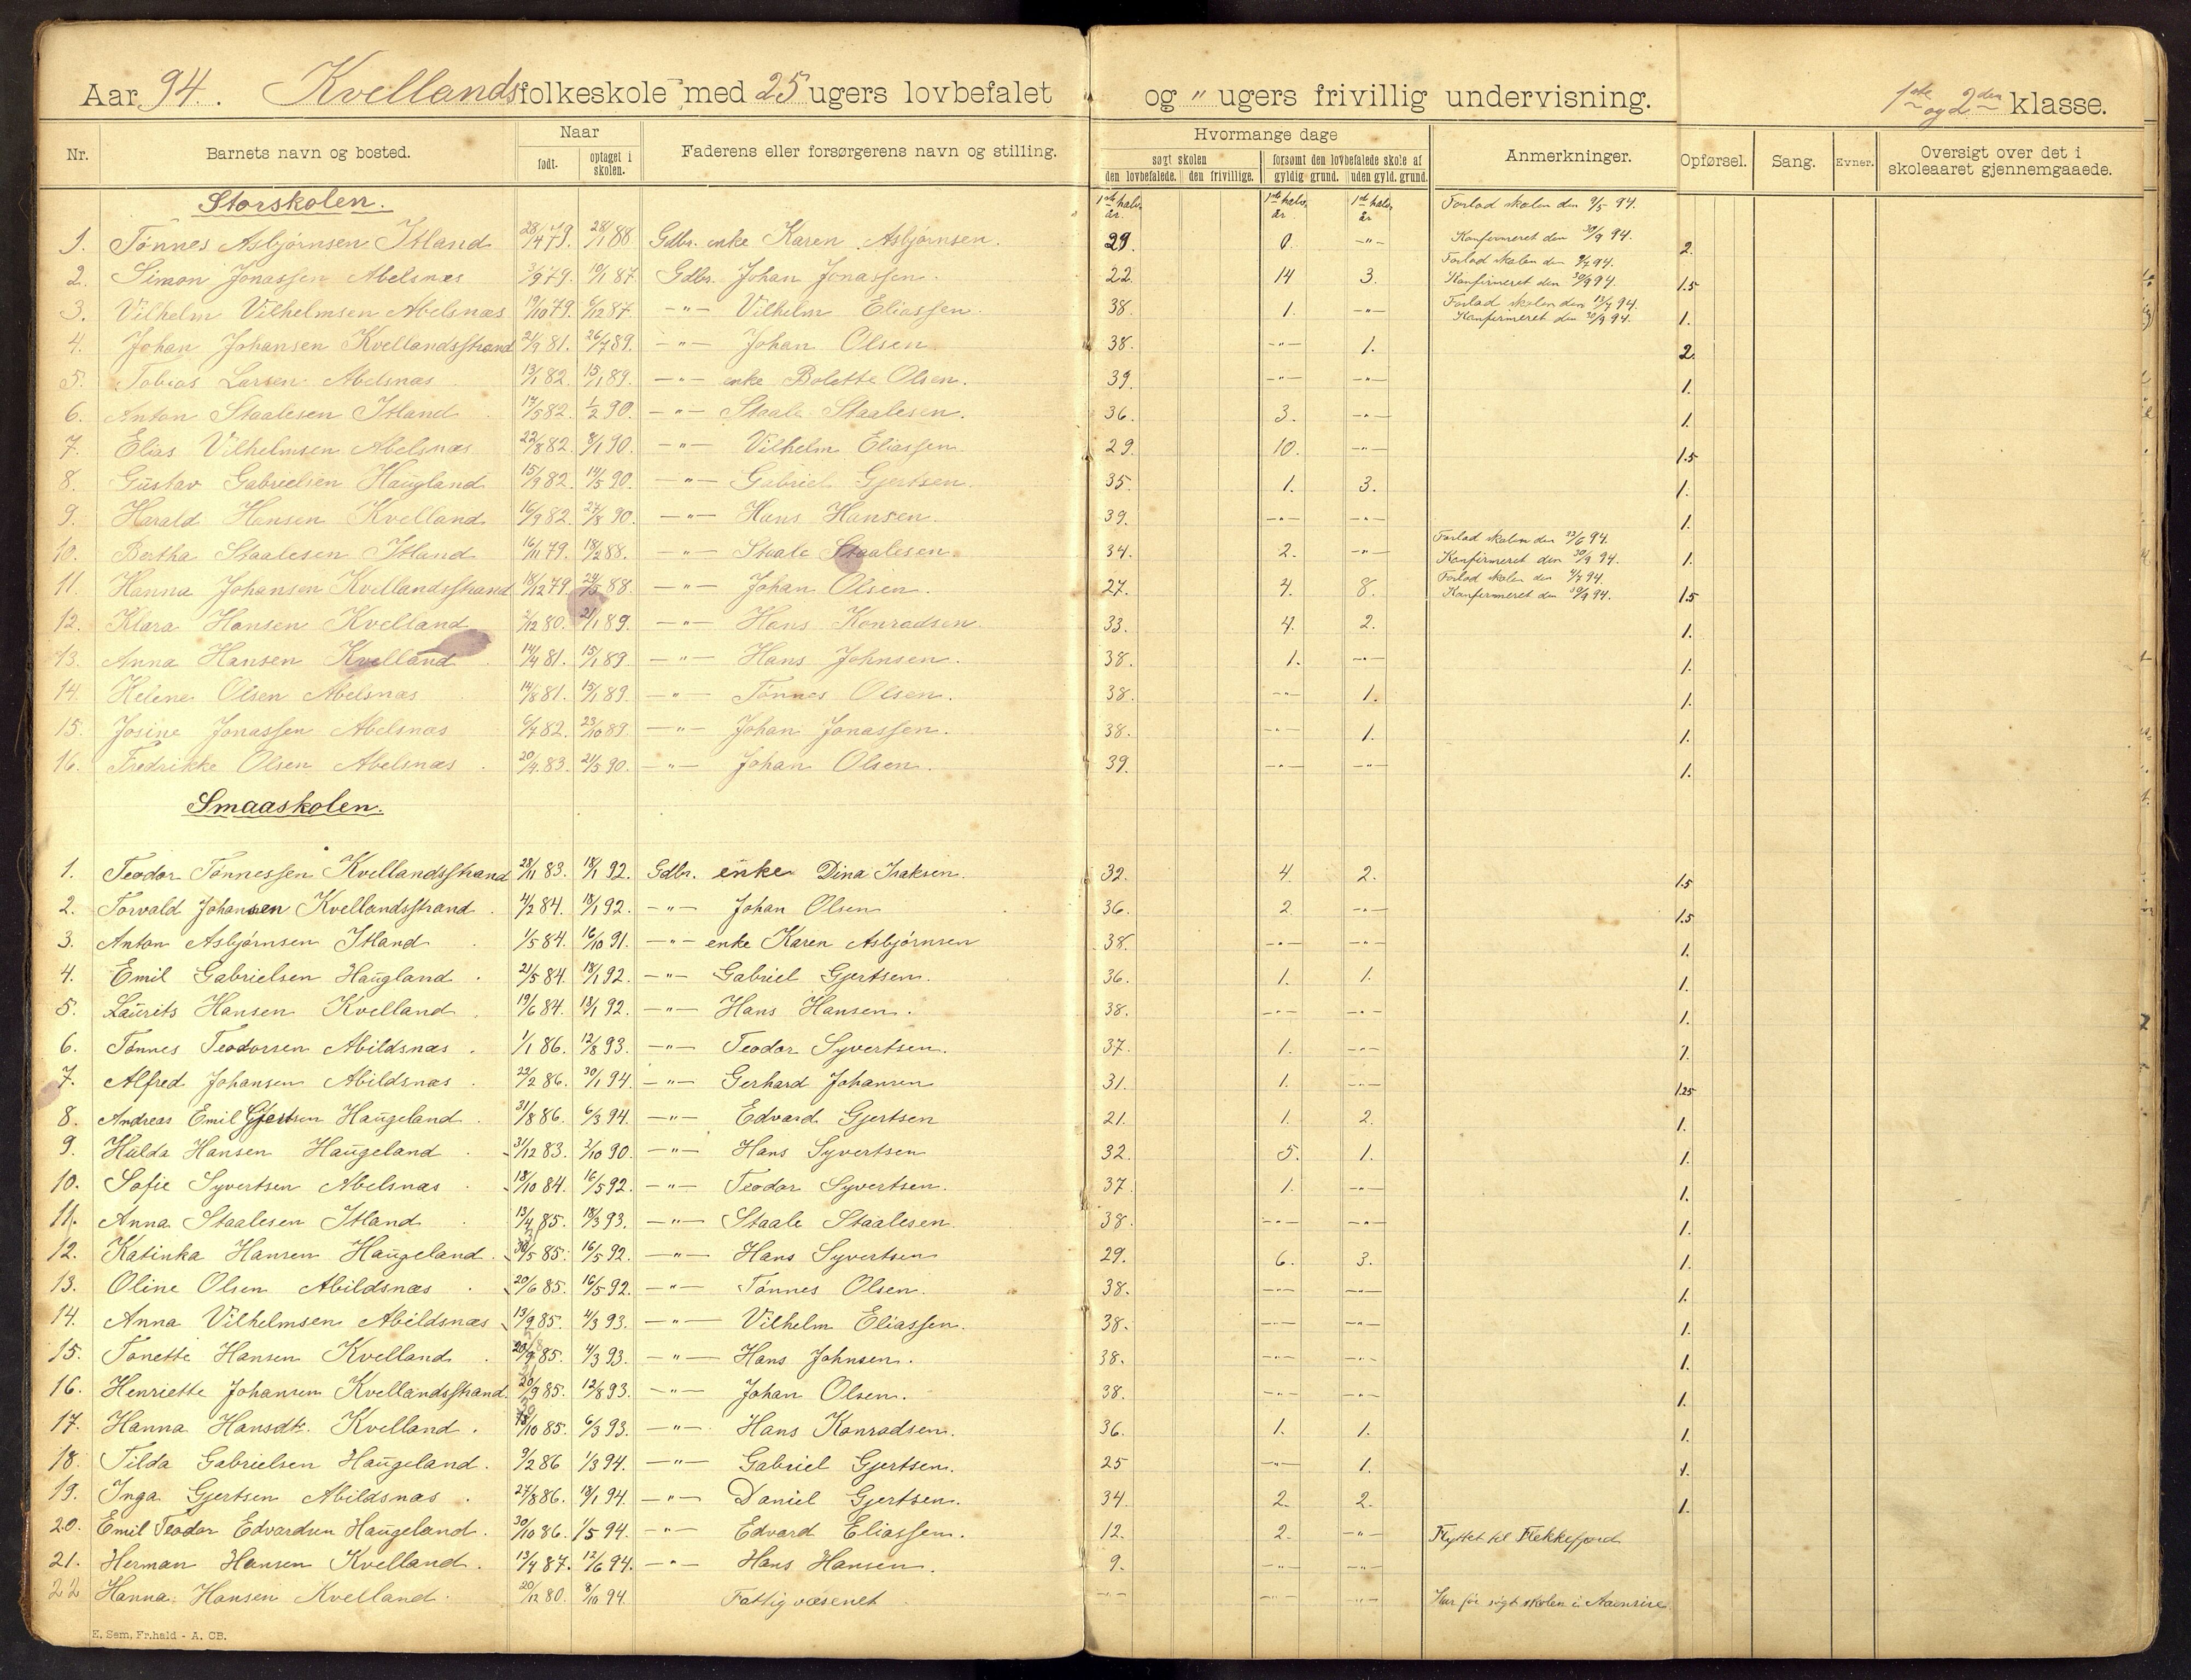 Aar 94. Kvellands folkeskole med 25 ugers lovbefalet og " ugers frivillig undervisning. 1ste og 2den klasse.
Nr. Barnets navn og bosted. Naar født. optaget i skolen. Faderens eller forsørgerens navn og stilling. Hvormange dage søgt skolen den lovbefalede. den frivillige. forsømt den lovbefalede skole af gyldig grund. uden gyld. grund. Anmerkninger. Opførsel. Sang. Evner. Oversigt over det i skoleaaret gjennemgaaede.
Storskolen. 1ste halvår 1ste halvår 1ste halvår Forlod skolen den 9/5 94.
1. Tønnes Asbjørnsen Itland 28/4 79. 28/1 88 Gdbr. enke Karen Asbjørnsen. 29 0. -"- Konfirmeret den 30/9 94. 2.
2. Simon Jonassen Abelsnæs 3/9 79. 19/1 87. Gdbr. Johan Jonassen. 22. 14 3. Forlod skolen den 9/7 94. Konfirmeret den 30/9 94. 1.5
3. Vilhelm Vilhelmsen Abelsnæs 19/10 79. 6/12 87. -"- Vilhelm Eliassen. 38. 1. -"- Forlod skolen den 13/7 94. Konfirmeret den 30/9 94. 1.
4. Johan Johansen Kvellandsstrand 21/9 81. 26/7 89. -"- Johan Olsen 38. -"- 1. 2.
5. Tobias Larsen Abelsnæs 13/1 82. 15/1 89. -"- enke Bolette Olsen. 39. -"- -"- 1.
6. Anton Staalesen Itland 14/5 82. 1/2 90. -"- Staale Staalesen. 36. 3. -"- 1.
7. Elias Vilhelmsen Abelsnæs 22/8 82. 8/1 90. -"- Vilhelm Eliassen 29. 10. -"- 1.5
8. Gustav Gabrielsen Haugland 15/9 82. 14/5 90. -"- Gabriel Gjertsen. 35. 1. 3. 1.
9. Harald Hansen Kvelland 16/9 82. 27/8 90. -"- Hans Hansen. 39. -"- -"- 1.
10. Bertha Staalesen Itland 16/11 79. 18/2 88. -"- Staale Staalesen. 34. 2. -"- Forlod skolen den 23/6 94. Konfirmeret den 30/9 94. 1.
11. Hanna Johansen Kvellandsstrand 18/12 79. 24/5 88. -"- Johan Olsen. 27. 4. 8. Forlod skolen den 4/7 94. Konfirmeret den 30/9 94. 1.5
12. Klara Hansen Kvelland 2/12 80. 21/1 89. -"- Hans Konradsen. 33. 4. 2. 1.
13. Anna Hansen Kvelland 14/4 81. 15/1 89. -"- Hans Johnsen. 38. 1. -"- 1.
14. Helene Olsen Abelsnæs 14/8 81. 15/1 89. -"- Tønnes Olsen. 38. -"- 1. 1.
15. Josine Jonassen Abelsnæs 6/7 82. 23/10 89. -"- Johan Jonassen. 38. -"- 1. 1.
16. Fredrikke Olsen Abelsnæs 20/4 83. 21/5 90. -"- Johan Olsen. 39. -"- -"- 1.
Smaaskolen.
1. Teodor Tønnessen Kvellandsstrand 28/11 83. 18/1 92. Gdbr. enke Dina Isaksen. 32. 4. 2. 1.5
2. Torvald Johansen Kvellandsstrand 4/2 84. 18/1 92. -"- Johan Olsen 36. 2. -"- 1.5
3. Anton Asbjørnsen Itland 1/5 84. 16/10 91. -"- enke Karen Asbjørnsen 38. -"- -"- 1.
4. Emil Gabrielsen Haugland 21/5 84. 18/1 92. -"- Gabriel Gjertsen. 36. 1. 1. 1.
5. Laurits Hansen Kvelland 19/6 84. 18/1 92. -"- Hans Hansen. 38. -"- -"- 1.
6. Tønnes Teodorsen Abildsnæs 1/1 86. 12/8 93. -"- Teodor Syvertsen. 37. 1. -"- 1.
7. Alfred Johansen Abildsnæs 22/2 86. 30/1 94. -"- Gerhard Johansen 31. 1. -"- 1.25
8. Andreas Emil Gjertsen Haugeland 31/8 86. 6/3 94. -"- Edvard Gjertsen 21. 1. 2. 1.
9. Hulda Hansen Haugeland 31/12 83. 2/10 90. -"- Hans Syvertsen 32. 5. 1. 1.
10. Sofie Syvertsen Abelsnæs 18/10 84. 16/5 92. -"- Teodor Syvertsen. 37. 1. -"- 1.
11. Anna Staalesen Itland 13/4 85. 18/3 93. -"- Staale Staalesen 38. -"- -"- 1.
12. Katinka Hansen Haugeland. 30/5 85. 16/5 92. -"- Hans Syvertsen 29. 6. 3. 1.
13. Oline Olsen Abildsnæs 20/6 85. 16/5 92. -"- Tønnes Olsen. 38. -"- -"- 1.
14. Anna Vilhelmsen Abildsnæs 13/9 85. 4/3 93. -"- Vilhelm Eliassen. 38. -"- -"- 1.
15. Tonette Hansen Kvelland 20/9 85. 4/3 93. -"- Hans Johnsen. 38. -"- -"- 1.
16. Henriette Johansen Kvellandsstrand. 20/9 85. 12/8 93. -"- Johan Olsen. 38. -"- -"- 1.
17. Hanna Hansdtr. Kvelland. /10 85. 6/3 93. -"- Hans Konradsen. 36. 1. 1. 1.
18. Tilda Gabrielsen Haugeland. 9/2 86 1/3 94. -"- Gabriel Gjertsen. 25 -"- 1. 1.
19. Inga Gjertsen Abildsnæs 27/8 86. 18/1 94. -"- Daniel Gjertsen. 34. 2. 2. 1.
20. Emil Teodor Edvardsen Haugeland. 30/10 86. 1/5 94. -"- Edvard Eliassen. 12. 2. -"- Flyttet til Flekkefjord
21. Herman Hansen Kvelland. 13/4 87. 12/6 94. -"- Hans Hansen. 9. -"- -"-
22 Hanna Hansen Kvelland. 20/12 80. 8/10 94. Fattigvæsenet -"- -"- -"- Har før søgt skolen i
E. Sem, Fr.hald - A. CB.